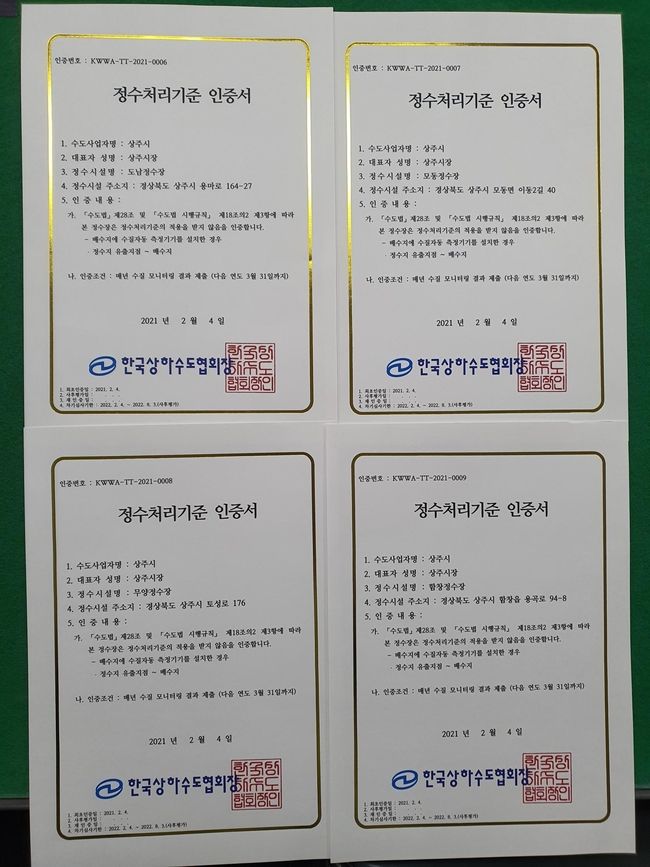 인증번호 : KWWA-TT-2021-0006
정수처리기준 인증서
1. 수도사업자명 : 상주시
2. 대표자 성명 : 상주시장
3. 정수시설명 : 도남정수장
4. 정수시설 주소지 : 경상북도 상주시 용마로 164-27
5. 인 증 내 용 :
가. 「수도법」제28조 및 「수도법 시행규칙」 제18조의2 제3항에 따라
본 정수장은 정수처리기준의 적용을 받지 않음을 인증합니다.
- 배수지에 수질자동 측정기기를 설치한 경우
· 정수지 유출지점 ~ 배수지
나. 인증조건 : 매년 수질 모니터링 결과 제출 (다음 연도 3월 31일까지)
2021 년 2 월 4 일
한국상하수도협회장
1. 최초인증일 : 2021. 2. 4.
2. 사후평가일 : . . .
3. 재 인 증 일 : . . .
4. 차기심사기한 : 2022. 2. 4. ~ 2022. 8. 3.(사후평가)
인증번호 : KWWA-TT-2021-0007
정수처리기준 인증서
1. 수도사업자명 : 상주시
2. 대표자 성명 : 상주시장
3. 정수시설명 : 모동정수장
4. 정수시설 주소지 : 경상북도 상주시 모동면 이동2길 40
5. 인 증 내 용 :
가. 「수도법」제28조 및 「수도법 시행규칙」 제18조의2 제3항에 따라
본 정수장은 정수처리기준의 적용을 받지 않음을 인증합니다.
- 배수지에 수질자동 측정기기를 설치한 경우
· 정수지 유출지점 ~ 배수지
나. 인증조건 : 매년 수질 모니터링 결과 제출 (다음 연도 3월 31일까지)
2021 년 2 월 4 일
한국상하수도협회장
1. 최초인증일 : 2021. 2. 4.
2. 사후평가일 : . . .
3. 재 인 증 일 : . . .
4. 차기심사기한 : 2022. 2. 4. ~ 2022. 8. 3.(사후평가)
인증번호 : KWWA-TT-2021-0008
정수처리기준 인증서
1. 수도사업자명 : 상주시
2. 대표자 성명 : 상주시장
3. 정수시설명 : 무양정수장
4. 정수시설 주소지 : 경상북도 상주시 토성로 176
5. 인 증 내 용 :
가. 「수도법」제28조 및 「수도법 시행규칙」 제18조의2 제3항에 따라
본 정수장은 정수처리기준의 적용을 받지 않음을 인증합니다.
- 배수지에 수질자동 측정기기를 설치한 경우
· 정수지 유출지점 ~ 배수지
나. 인증조건 : 매년 수질 모니터링 결과 제출 (다음 연도 3월 31일까지)
2021 년 2 월 4 일
한국상하수도협회장
1. 최초인증일 : 2021. 2. 4.
2. 사후평가일 : . . .
3. 재 인 증 일 : . . .
4. 차기심사기한 : 2022. 2. 4. ~ 2022. 8. 3.(사후평가)
인증번호 : KWWA-TT-2021-0009
정수처리기준 인증서
1. 수도사업자명 : 상주시
2. 대표자 성명 : 상주시장
3. 정수시설명 : 함창정수장
4. 정수시설 주소지 : 경상북도 상주시 함창읍 용곡로 94-8
5. 인 증 내 용 :
가. 「수도법」제28조 및 「수도법 시행규칙」 제18조의2 제3항에 따라
본 정수장은 정수처리기준의 적용을 받지 않음을 인증합니다.
- 배수지에 수질자동 측정기기를 설치한 경우
· 정수지 유출지점 ~ 배수지
나. 인증조건 : 매년 수질 모니터링 결과 제출 (다음 연도 3월 31일까지)
2021 년 2 월 4 일
한국상하수도협회장
1. 최초인증일 : 2021. 2. 4.
2. 사후평가일 : . . .
3. 재 인 증 일 : . . .
4. 차기심사기한 : 2022. 2. 4. ~ 2022. 8. 3.(사후평가)